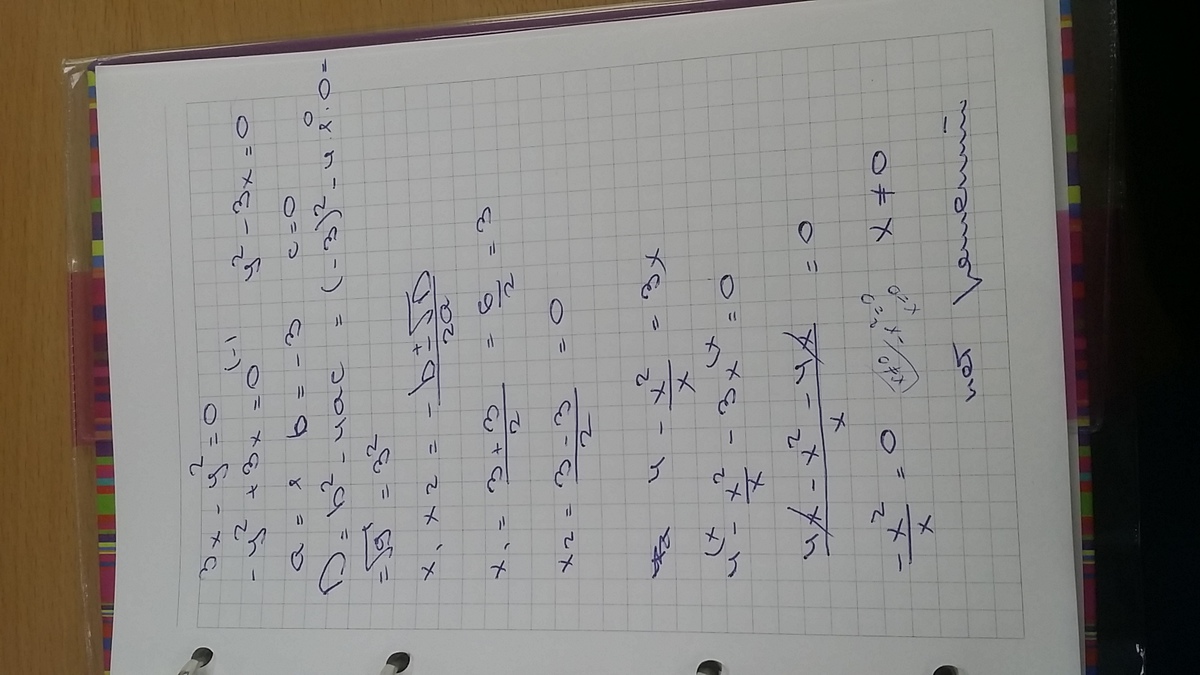 3x - y² = 0
-y² + 3x = 0 (-1 y² - 3x = 0
a = 1 b = -3 c = 0
D = b² - 4ac = (-3)² - 4·1·0 =
= √9 = 3²
x₁ x₂ = -b ± √D / 2a
x₁ = 3 + 3 / 2 = 6 / 2 = 3
x₂ = 3 - 3 / 2 = 0
4 - x² / x = 3x
4 (x - x² / x - 3x (x = 0
4x - x² - 4x / x = 0
-x² / x = 0 x ≠ 0
нет решений